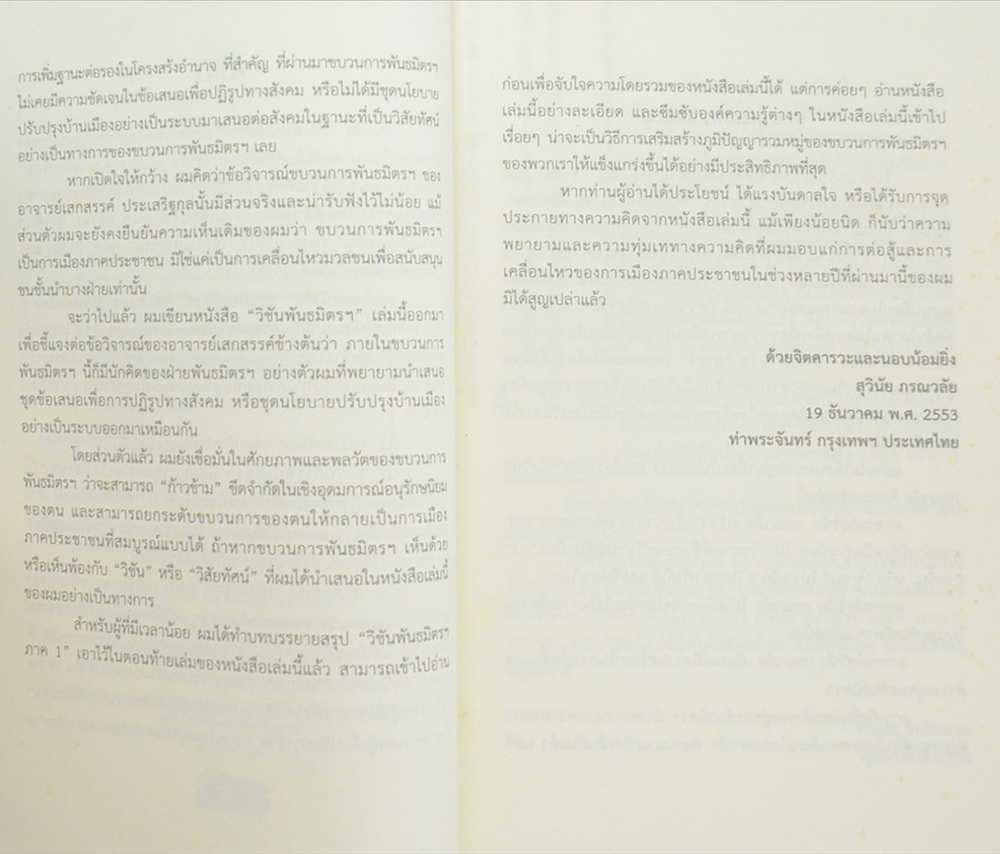 การเพิ่มฐานะต่อรองในโครงสร้งอำนาจ ที่สำคัญ ที่ผ่านมาขบวนการพันธมิตรฯ
ไม่เคยมีความชัดเจนในข้อเสนอเพื่อปฏิรูปทางสังคม หรือไม่ได้มีชุดนโยบาย
ปรับปรุงบ้านเมืองอย่างเป็นระบบมาเสนอต่อสังคมในฐานะที่เป็นวิสัยทัศน์
อย่างเป็นทางการของขบวนการพันธมิตรฯ เลย
หากเปิดใจให้กว้าง ผมคิดว่าข้อวิจารณ์ขบวนการพันธมิตรฯ ของ
อาจารย์เสกสรรค์ ประเสริฐกุลนั้นมีส่วนจริงและน่ารับฟังไว้ไม่น้อย แม้
ส่วนตัวผมจะยังคงยืนยันความเห็นเดิมของผมว่า ขบวนการพันธมิตรฯ
เป็นการเมืองภาคประชาชน มิใช่แค่เป็นการเคลื่อนไหวมวลชนเพื่อสนับสนุน
ชนชั้นนำบางฝ่ายเท่านั้น
จะว่าไปแล้ว ผมเขียนหนังสือ “วิชันพันธมิตรฯ” เล่มนี้ออกมา
เพื่อชี้แจงต่อข้อวิจารณ์ของอาจารย์เสกสรรค์ข้างต้นว่า ภายในขบวนการ
พันธมิตรฯ นี้ก็มีนักคิดของฝ่ายพันธมิตรฯ อย่างตัวผมที่พยายามนำเสนอ
ชุดข้อเสนอเพื่อการปฏิรูปทางสังคม หรือชุดนโยบายปรับปรุงบ้านเมือง
อย่างเป็นระบบออกมาเหมือนกัน
โดยส่วนตัวแล้ว ผมยังเชื่อมั่นในศักยภาพและพลวัตของขบวนการ
พันธมิตรฯ ว่าจะสามารถ “ก้าวข้าม” ขีดจำกัดในเชิงอุดมการณ์อนุรักษนิยม
ของตน และสามารถยกระดับขบวนการของตนให้กลายเป็นการเมือง
ภาคประชาชนที่สมบูรณ์แบบได้ ถ้าหากขบวนการพันธมิตรฯ เห็นด้วย
หรือเห็นพ้องกับ “วิชัน” หรือ “วิสัยทัศน์” ที่ผมได้นำเสนอในหนังสือเล่มนี้
ของผมอย่างเป็นทางการ
สำหรับผู้ที่มีเวลาน้อย ผมได้ทำบทบรรยายสรุป “วิชันพันธมิตรฯ
ภาค 1” เอาไว้ในตอนท้ายเล่มของหนังสือเล่มนี้แล้ว สามารถเข้าไปอ่าน
ก่อนเพื่อจับใจความโดยรวมของหนังสือเล่มนี้ได้ แต่การค่อยๆ อ่านหนังสือ
เล่มนี้อย่างละเอียด และซึมซับองค์ความรู้ต่างๆ ในหนังสือเล่มนี้เข้าไป
เรื่อยๆ น่าจะเป็นวิธีการเสริมสร้างภูมิปัญญารวมหมู่ของขบวนการพันธมิตรฯ
ของพวกเราให้แข็งแกร่งขึ้นได้อย่างมีประสิทธิภาพที่สุด
หากท่านผู้อ่านได้ประโยชน์ ได้แรงบันดาลใจ หรือได้รับการจุด
ประกายทางความคิดจากหนังสือเล่มนี้ แม้เพียงน้อยนิด ก็นับว่าความ
พยายามและความทุ่มเททางความคิดที่ผมมอบแก่การต่อสู้และการ
เคลื่อนไหวของการเมืองภาคประชาชนในช่วงหลายปีที่ผ่านมานี้ของผม
มิได้สูญเปล่าแล้ว
ด้วยจิตคารวะและนอบน้อมยิ่ง
สุวินัย ภรณวลัย
19 ธันวาคม พ.ศ. 2553
ท่าพระจันทร์ กรุงเทพฯ ประเทศไทย